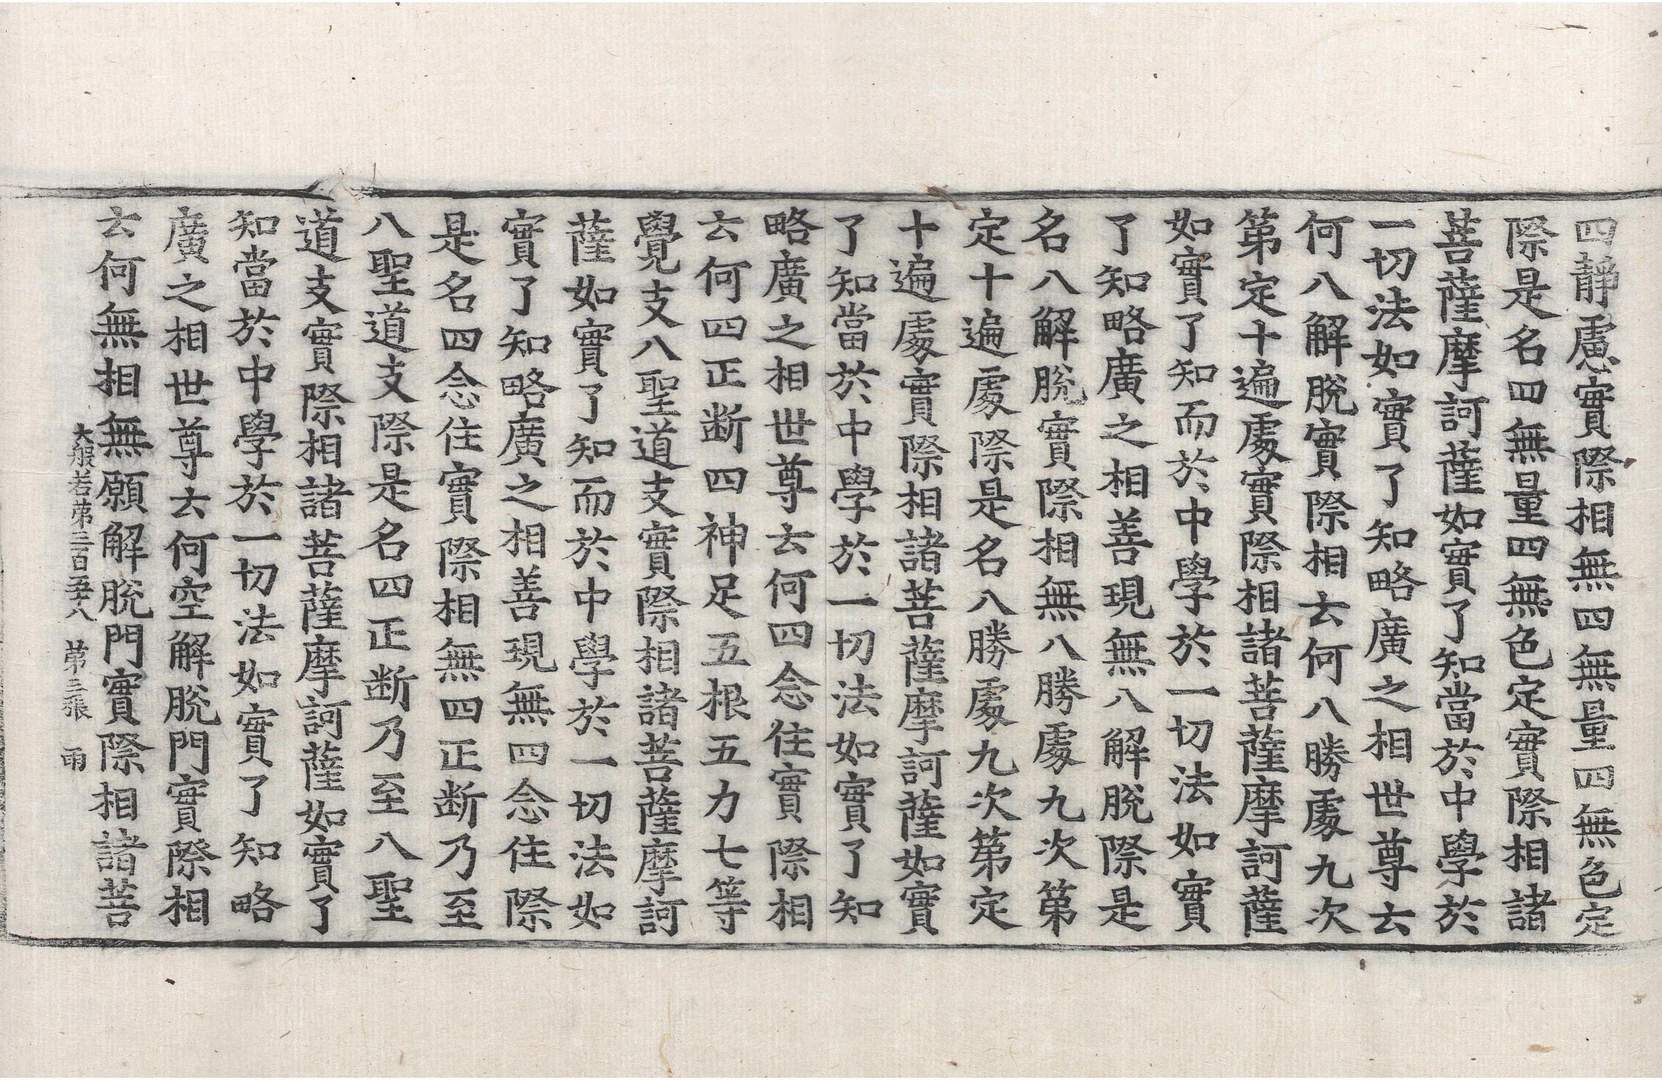 四靜慮實際相無四無量四無色定
際是名四無量四無色定實際相諸
菩薩摩訶薩如實了知當於中學於
一切法如實了知略廣之相世尊云
何八解脫實際相云何八勝處九次
第定十遍處實際相諸菩薩摩訶薩
如實了知而於中學於一切法如實
了知略廣之相善現無八解脫際是
名八解脫實際相無八勝處九次第
定十遍處際是名八勝處九次第定
十遍處實際相諸菩薩摩訶薩如實
了知當於中學於一切法如實了知
略廣之相世尊云何四念住實際相
云何四正断四神足五根五力七等
覺支八聖道支實際相諸菩薩摩訶
薩如實了知而於中學於一切法如
實了知略廣之相善現無四念住際
是名四念住實際相無四正断乃至
八聖道支際是名四正断乃至八聖
道支實際相諸菩薩摩訶薩如實了
知當於中學於一切法如實了知略
廣之相世尊云何空解脫門實際相
云何無相無願解脫門實際相諸菩
大般若第三百五十八　第三張　雨